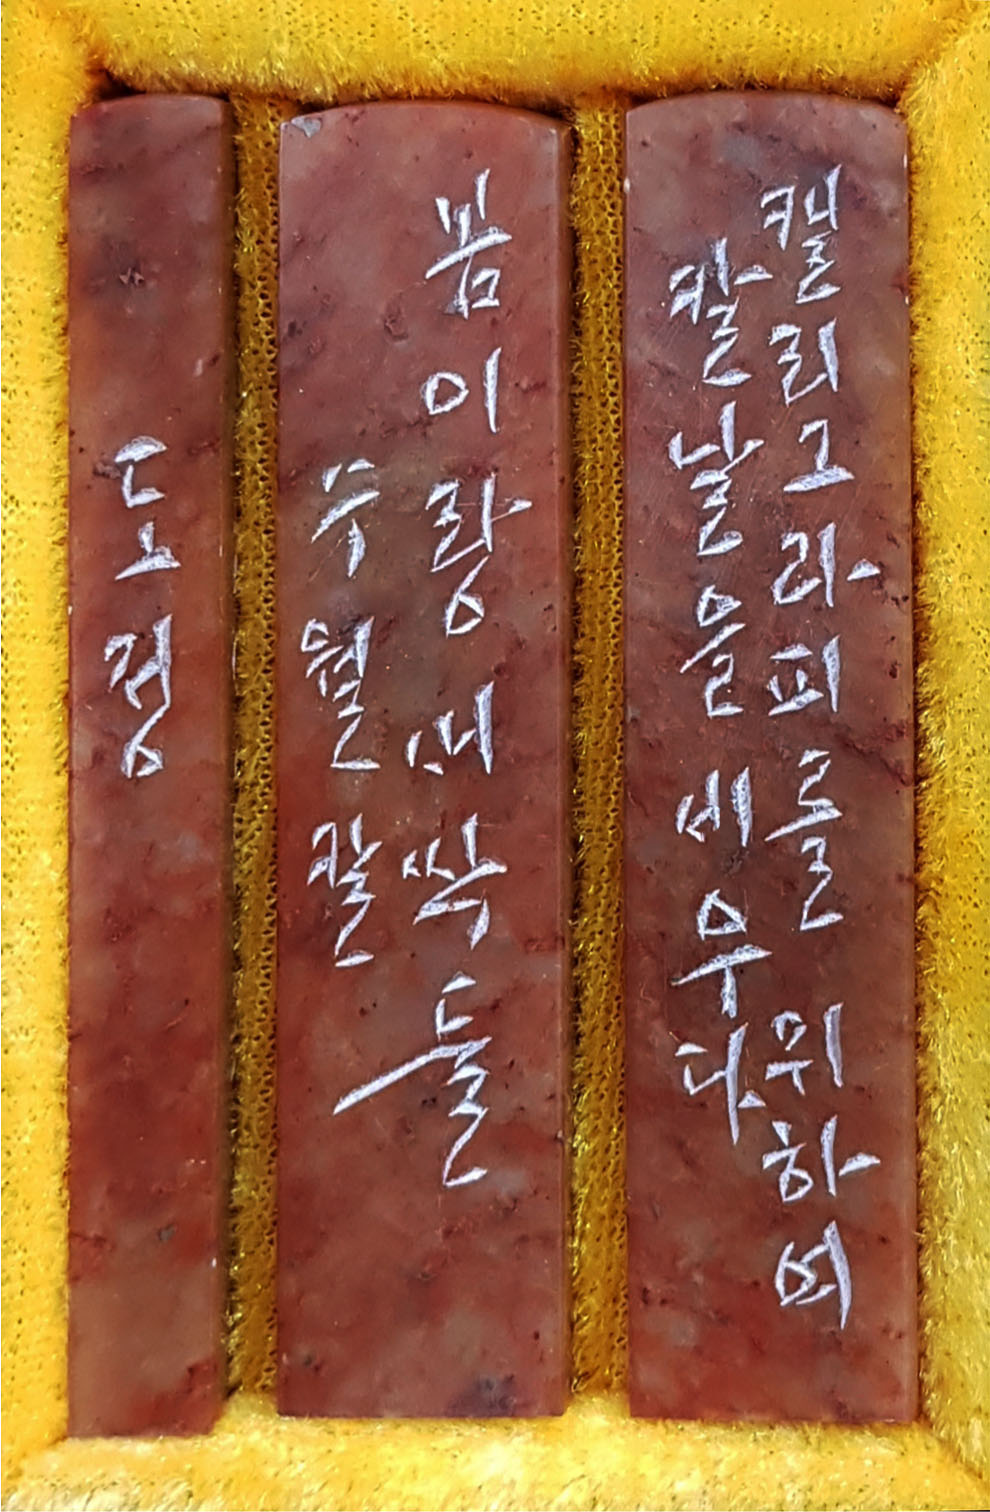 캘리그라피를 위하여
칼날을 세우다
봄이랑 새싹들
수월
도정